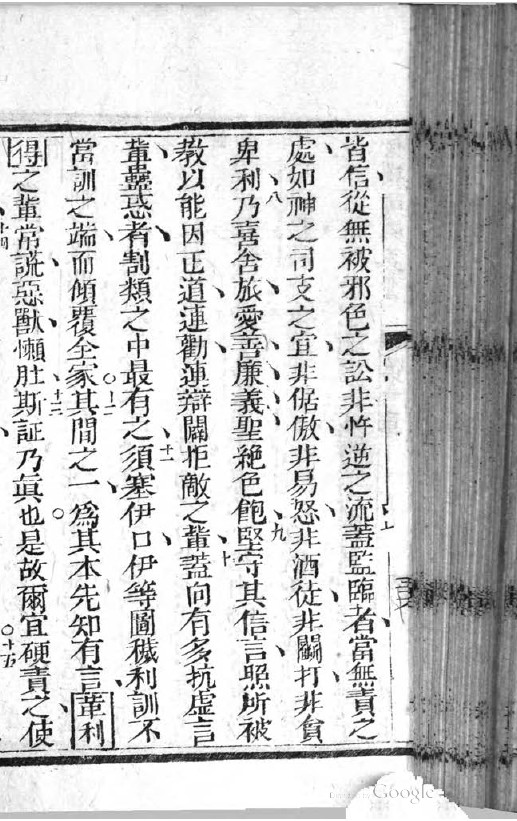 皆信從無被邪色之訟非忤逆之流蓋監臨者當無責之
處如神之司支之宜非倨傲非易怒非酒徒非鬬打非貪
卑利八乃喜舍旅愛善廉義聖絶色飽堅守其信言九照所被
教以能因正道連勸連辯闢拒敵之輩蓋向有多抗虛言十
輩蠱惑者割類之中最有之十一須塞伊口伊等圖穢利訓不
當訓之端而傾覆全家十二其間之一為其本先知有言革利
得之輩常謊惡獸懶肚斯証乃眞也是故爾宜硬責之使
Google